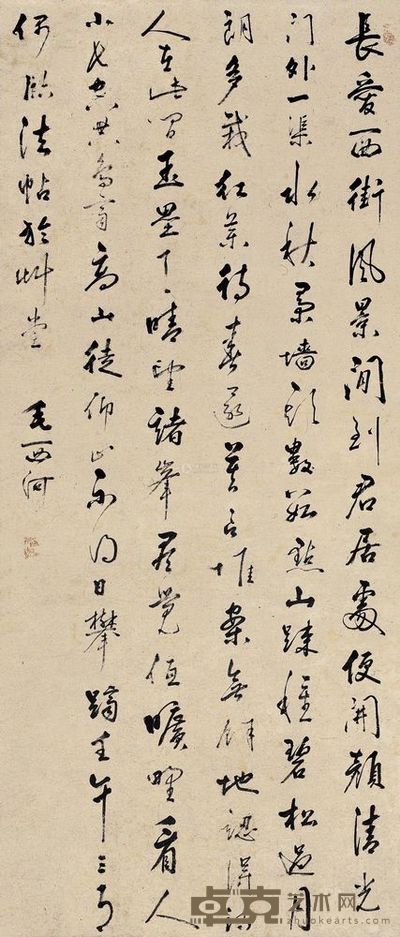 長愛西街風景閒到君居處便開顏清光
門外一渠水秋景墻頭數點山踈種碧松過月
朗多栽紅葉待春還莫言堆案無餘地認得詩
人在此間晴望諸峯曠野看人
小高山徒仰止不日攀躋壬午三月
偶臨法帖於艸堂 毛西河
卓克艺术网
www.zhuokearts.com